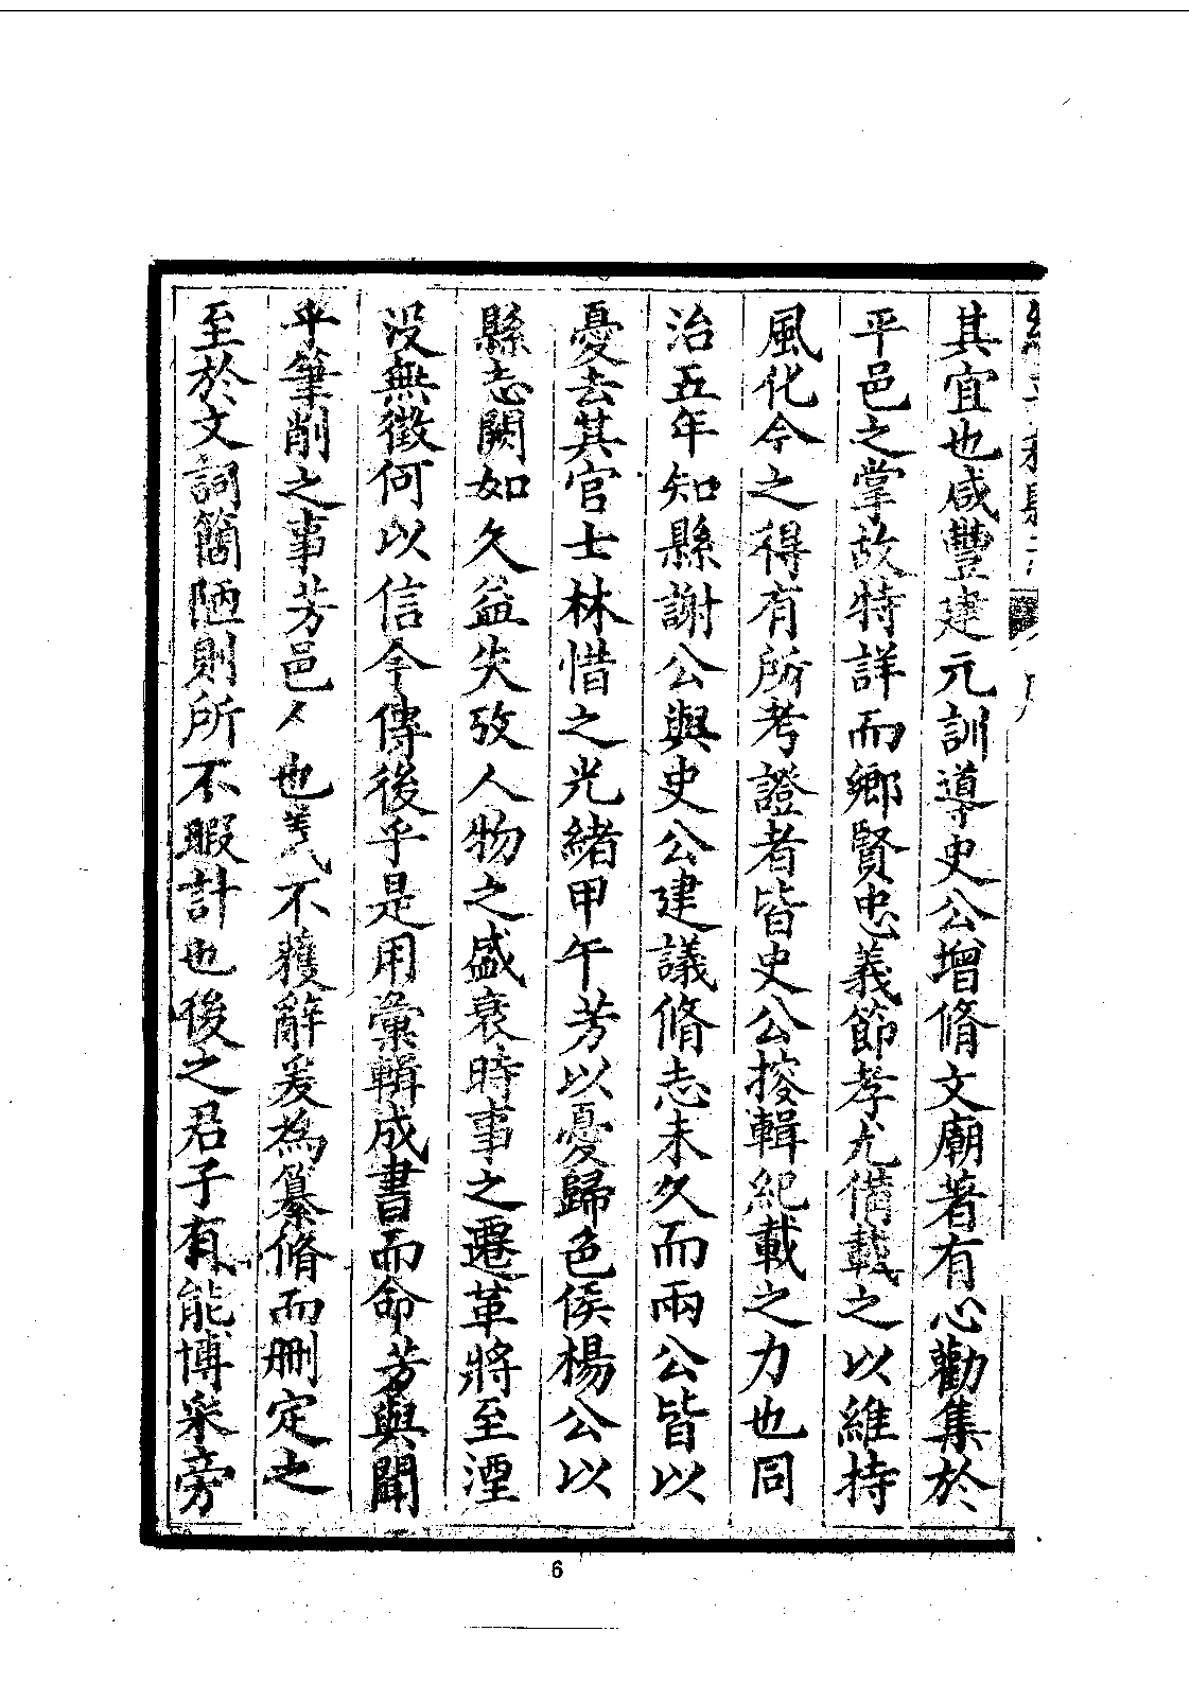 其宜也咸豐建元訓導史公增脩文廟著有心勸集於
平邑之掌故特詳而鄉賢忠義節孝尤備載之以維持
風化今之得有所考證者皆史公搜輯紀載之力也同
治五年知縣謝公與史公建議脩志未久而兩公皆以
憂去其官士林惜之光緒甲午芳以憂歸邑侯楊公以
縣志闕如久益失攷人物之盛衰時事之遷革將至湮
沒無徵何以信今傳後乎是用彙輯成書而命芳與聞
乎筆削之事芳邑人也義不獲辭爰為纂脩而刪定之
至於文詞簡陋則所不暇計也後之君子有能博采旁
6